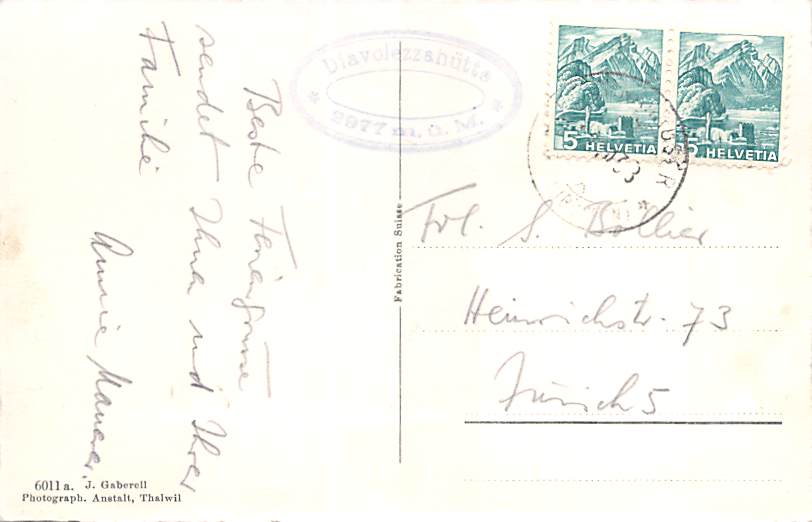 Beste Feriengrüsse
sendet Ihnen und Ihrer
Familie
Annie Maurer.
Diavolezzahütte
* 2977 m. ü. M. *
5 HELVETIA
5 HELVETIA
Frl. S. Bollier
Heinrichstr. 73
Zürich 5
Fabrication Suisse
6011a. J. Gaberell
Photograph. Anstalt, Thalwil